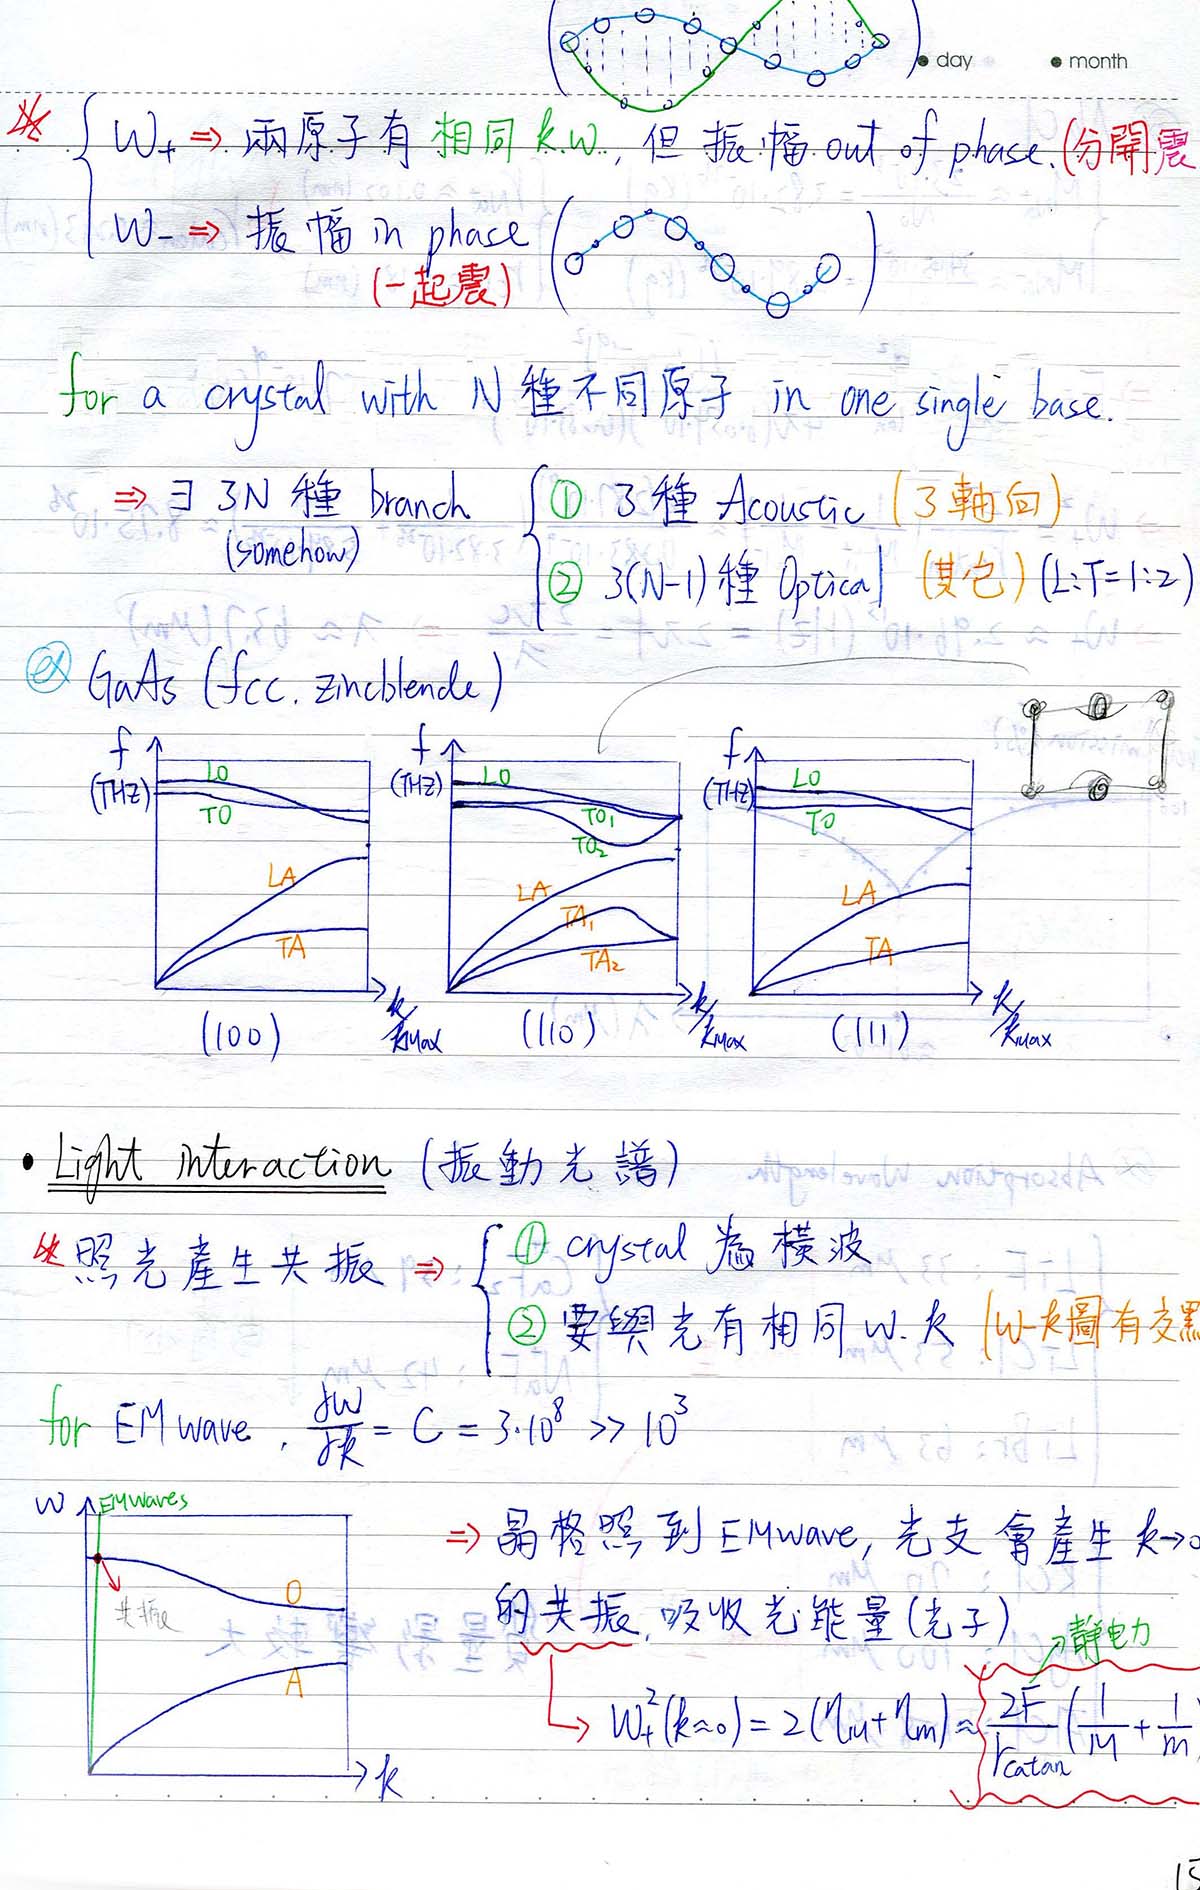 • day • month
W₊ ⇒ 兩原子有相同 k.w., 但振幅 out of phase. (分開震
W₋ ⇒ 振幅 in phase
(一起震)
for a crystal with N 種不同原子 in one single base.
⇒ ∃ 3N 種 branch
(somehow)
① 3種 Acoustic (3軸向)
② 3(N-1)種 Optical (其它) (L:T=1:2)
ex GaAs (fcc. zincblende)
f (THz) LO TO LA TA k/kMax
(100)
f (THz) LO TO₁ TO₂ LA TA₁ TA₂ k/kMax
(110)
f (THz) LO TO LA TA k/kMax
(111)
• Light interaction (振動光譜)
照光產生共振 ⇒
① crystal 為橫波
② 要與光有相同 w.k (w-k圖有交點
for EM wave, dw/dk = C = 3·10⁸ >> 10³
w EM waves
共振
O
A
k
⇒ 晶格照到 EM wave, 光支會產生 k→0
的共振, 吸收光能量(光子)
→靜電力
→ W₊²(k≈0) = 2(ηM+ηm) ≈ 2F/rcatan (1/M + 1/m)